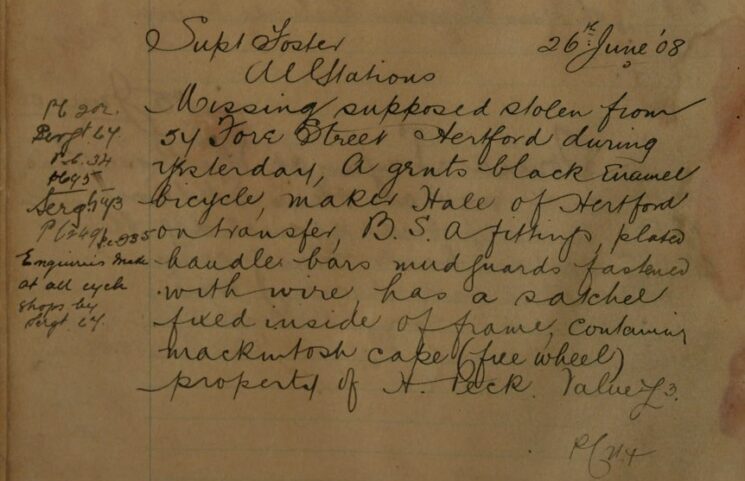 Supt Foster 26th June '08
All Stations
Missing supposed stolen from
54 Fore Street Hertford during
yesterday, A gents black Enamel
bicycle, maker Hale of Hertford
on transfer, B. S. A fittings, plated
handle bars mudguards fastened
with wire, has a satchel
fixed inside of frame, containing
mackintosh cape (free wheel)
property of H. Peck. Value £3.
PC 202.
Sergt 64
P.C. 34
Sergt
Enquiries made
at all cycle
shops by
Sergt 64.